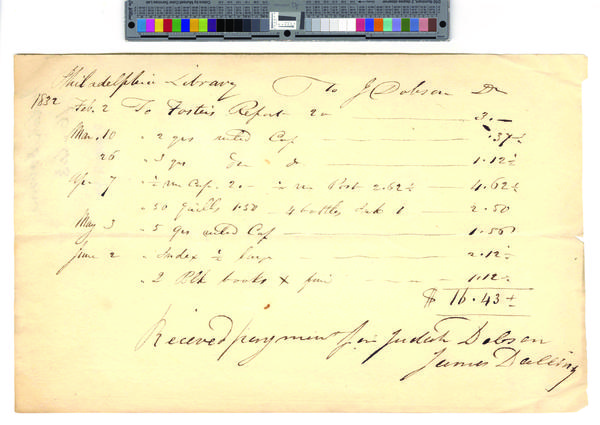 Philadelphia Library To J Dobson Dr
1832
Feb. 2 To Fosters Report 2 3.—
Mar. 10 " 2 qrs ruled Cap .37½
26 " 3 qrs do 1.12½
Apr 7 " ½ rm Cap. 2.— ½ rm Post 2.62½ 4.62½
" 50 Quills 1.50 — 4 bottles Ink 1 2.50
May 3 " 5 qrs ruled Cap 1.56
June 2 " Index ½ 2.12½
" 2 Blk books 1.12½
$ 16.43½
Received payment for Judith Dobson
James Dalling